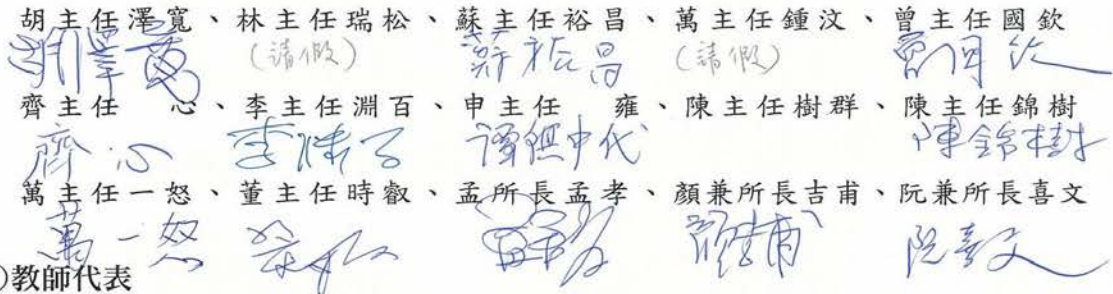 胡主任澤寬、林主任瑞松、蘇主任裕昌、萬主任鍾汶、曾主任國欽
胡澤寬 (請假) 蘇裕昌 (請假) 曾國欽
齊主任 心、李主任淵百、申主任 雍、陳主任樹群、陳主任錦樹
齊心 李淵百 譚鎮中代 陳錦樹
萬主任一怒、董主任時叡、孟所長孟孝、顏兼所長吉甫、阮兼所長喜文
萬一怒 阮喜文
)教師代表